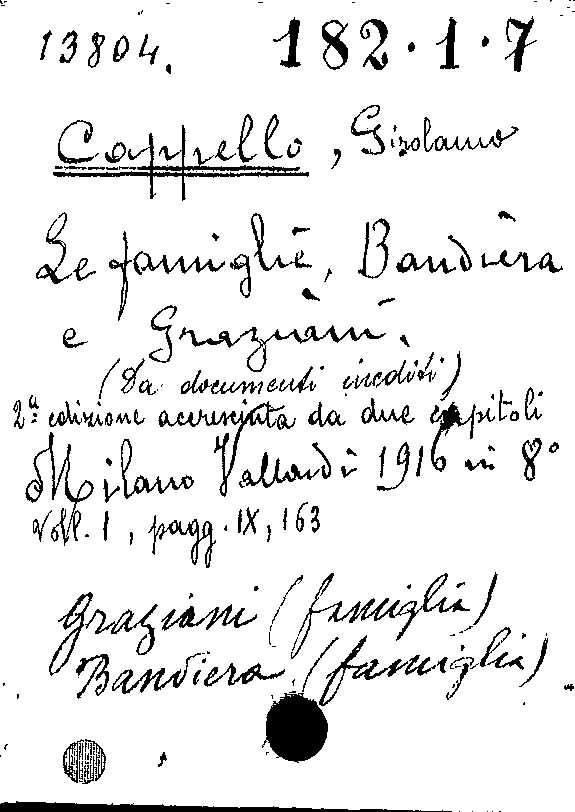 13804. 182·1·7
Cappello, Girolamo
Le famiglie, Bandiera
e Graziani.
(Da documenti inediti)
2ª edizione accresciuta da due capitoli
Milano Vallardi 1916 in 8°
Voll. 1, pagg. IX, 163
Graziani (famiglia)
Bandiera (famiglia)